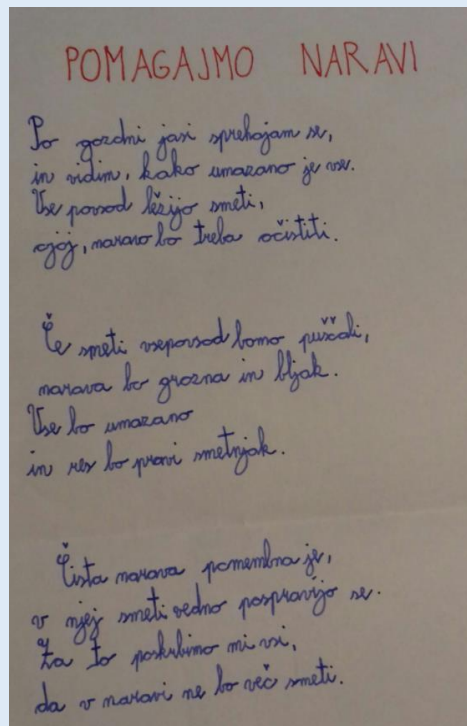 POMAGAJMO NARAVI
Po gozdni jasi sprehajam se,
in vidim, kako umazano je vse.
Vse povsod ležijo smeti,
ojoj, naravo bo treba očistiti.
Če smeti vsepovsod bomo puščali,
narava bo grozna in bljak.
Vse bo umazano
in res bo pravi smetnjak.
Čista narava pomembna je,
v njej smeti vedno pospravijo se.
Za to poskrbimo mi vsi,
da v naravi ne bo več smeti.